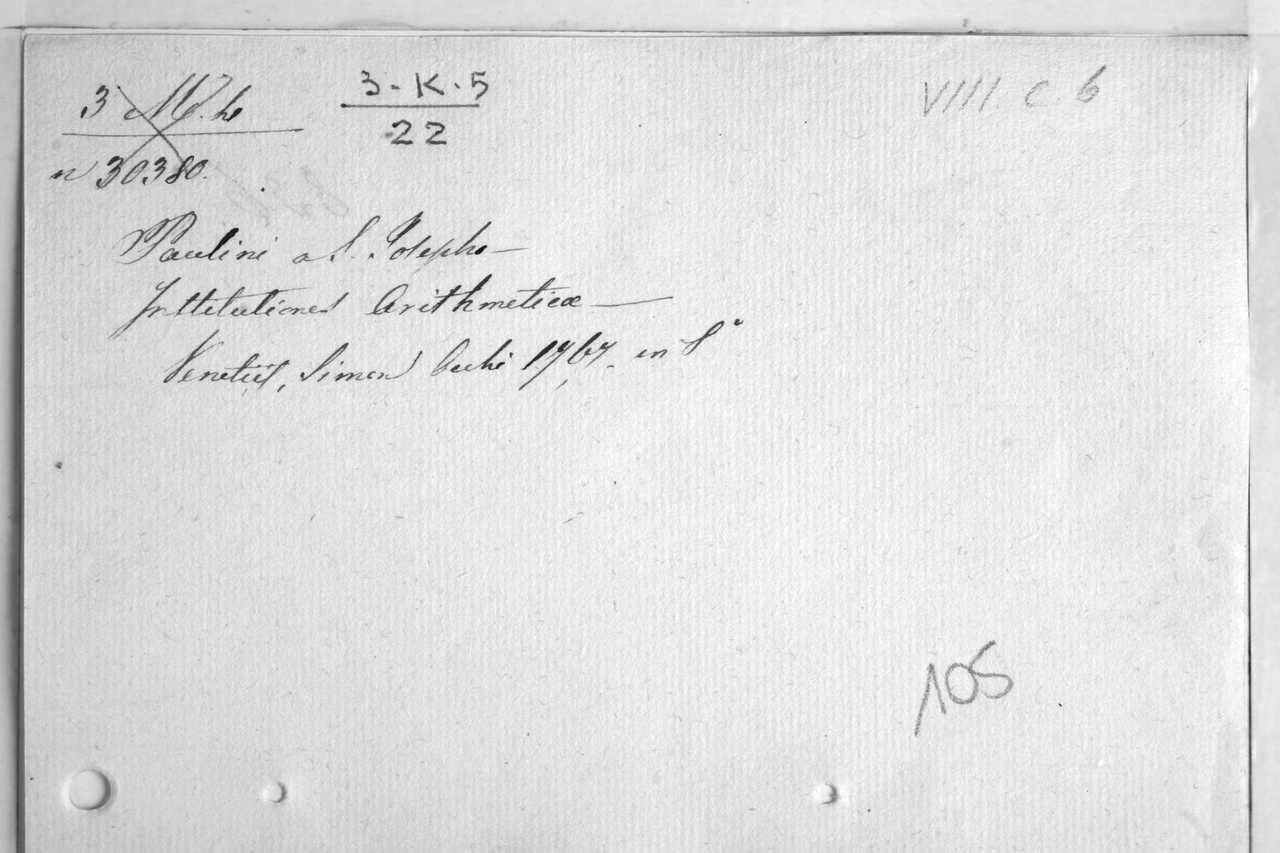 3 M. h
3-K-5
22
VIII. c. 6
n 30380.
Paulini a S. Josepho —
Institutiones Arithmeticæ —
Venetiis, Simon Occhi 1767. in 8°
105